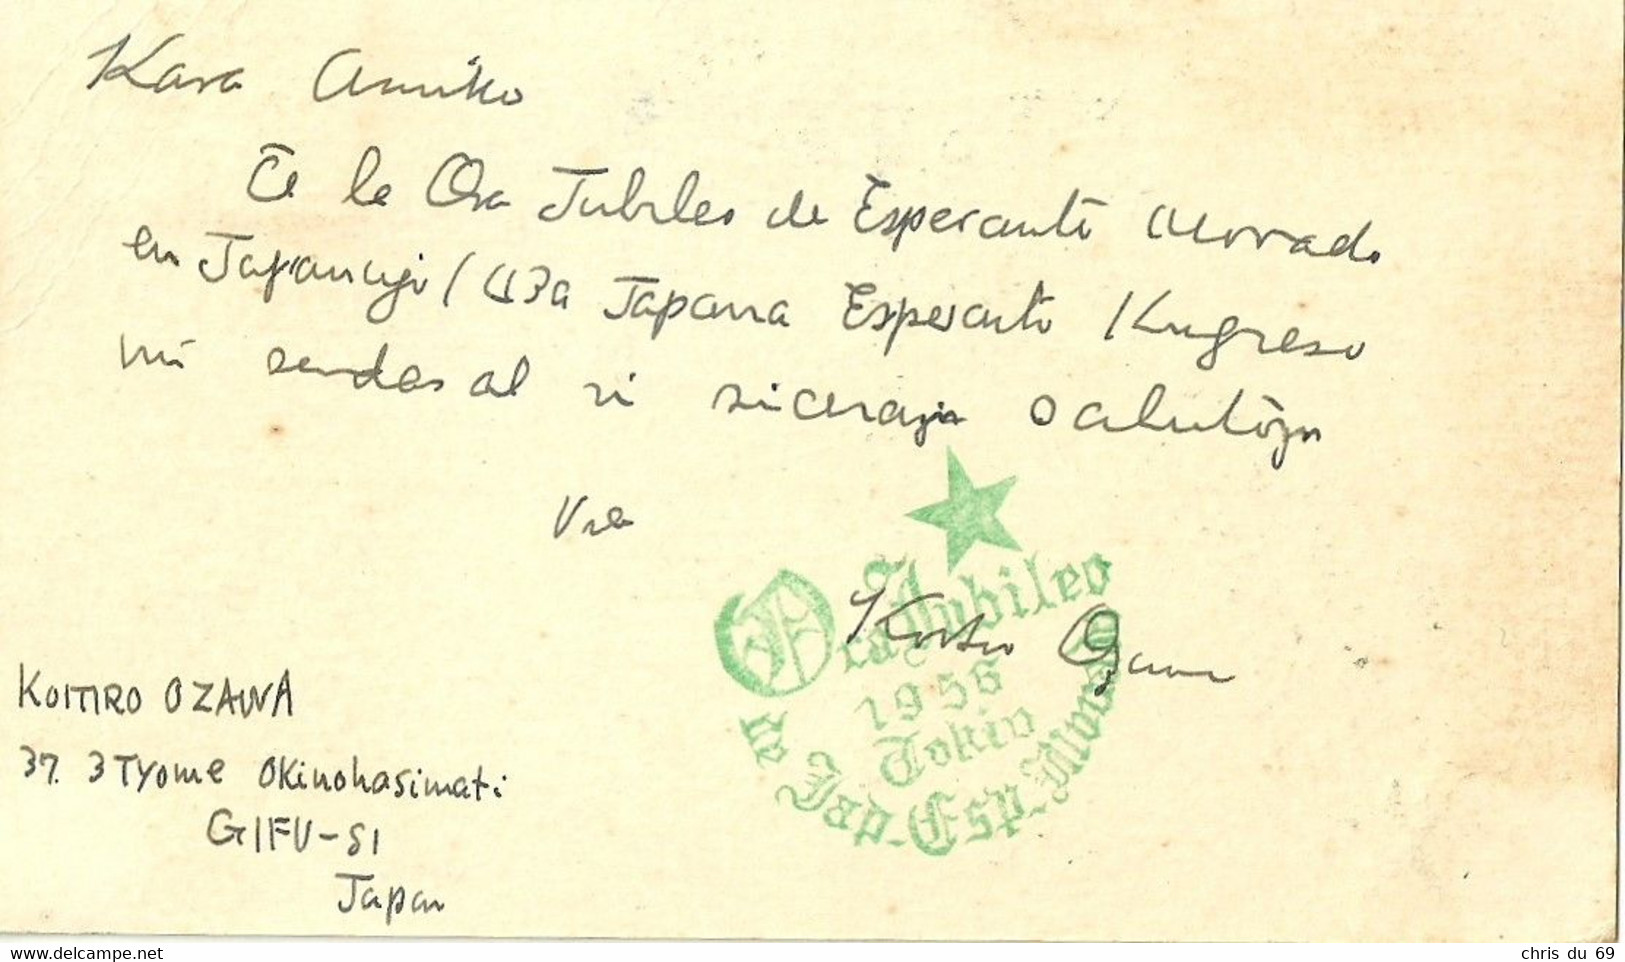 Kara Amiko
Ĉe la Ora Jubileo de Esperanto Movado
en Japanujo / 43a Japana Esperanto Kongreso
mi sendas al vi sincerajn salutojn
Via
Ora Jubileo
1956
Tokio
de Jap-Esp-Movado
KOITIRO OZAWA
37. 3 TYome OKinohasimati
GIFU-SI
Japan
www.delcampe.net
chris du 69